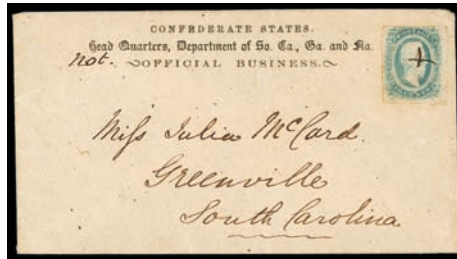 CONFEDERATE STATES.
Head Quarters, Department of So. Ca., Ga. and Fla.
not. OFFICIAL BUSINESS.
Miss Julia McCard.
Greenville
South Carolina